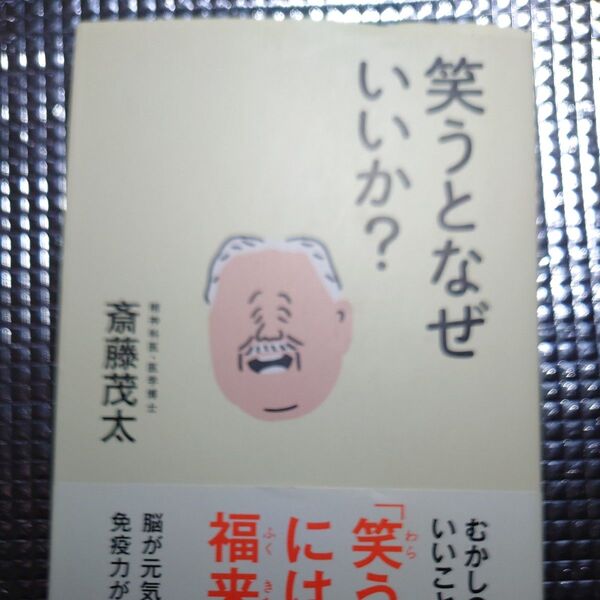 笑うとなぜ
いいか？
精神科医・医学博士
斎藤茂太
むかしの
いいこと
「笑う
わら
には
福来
ふく き
脳が元気
免疫力が